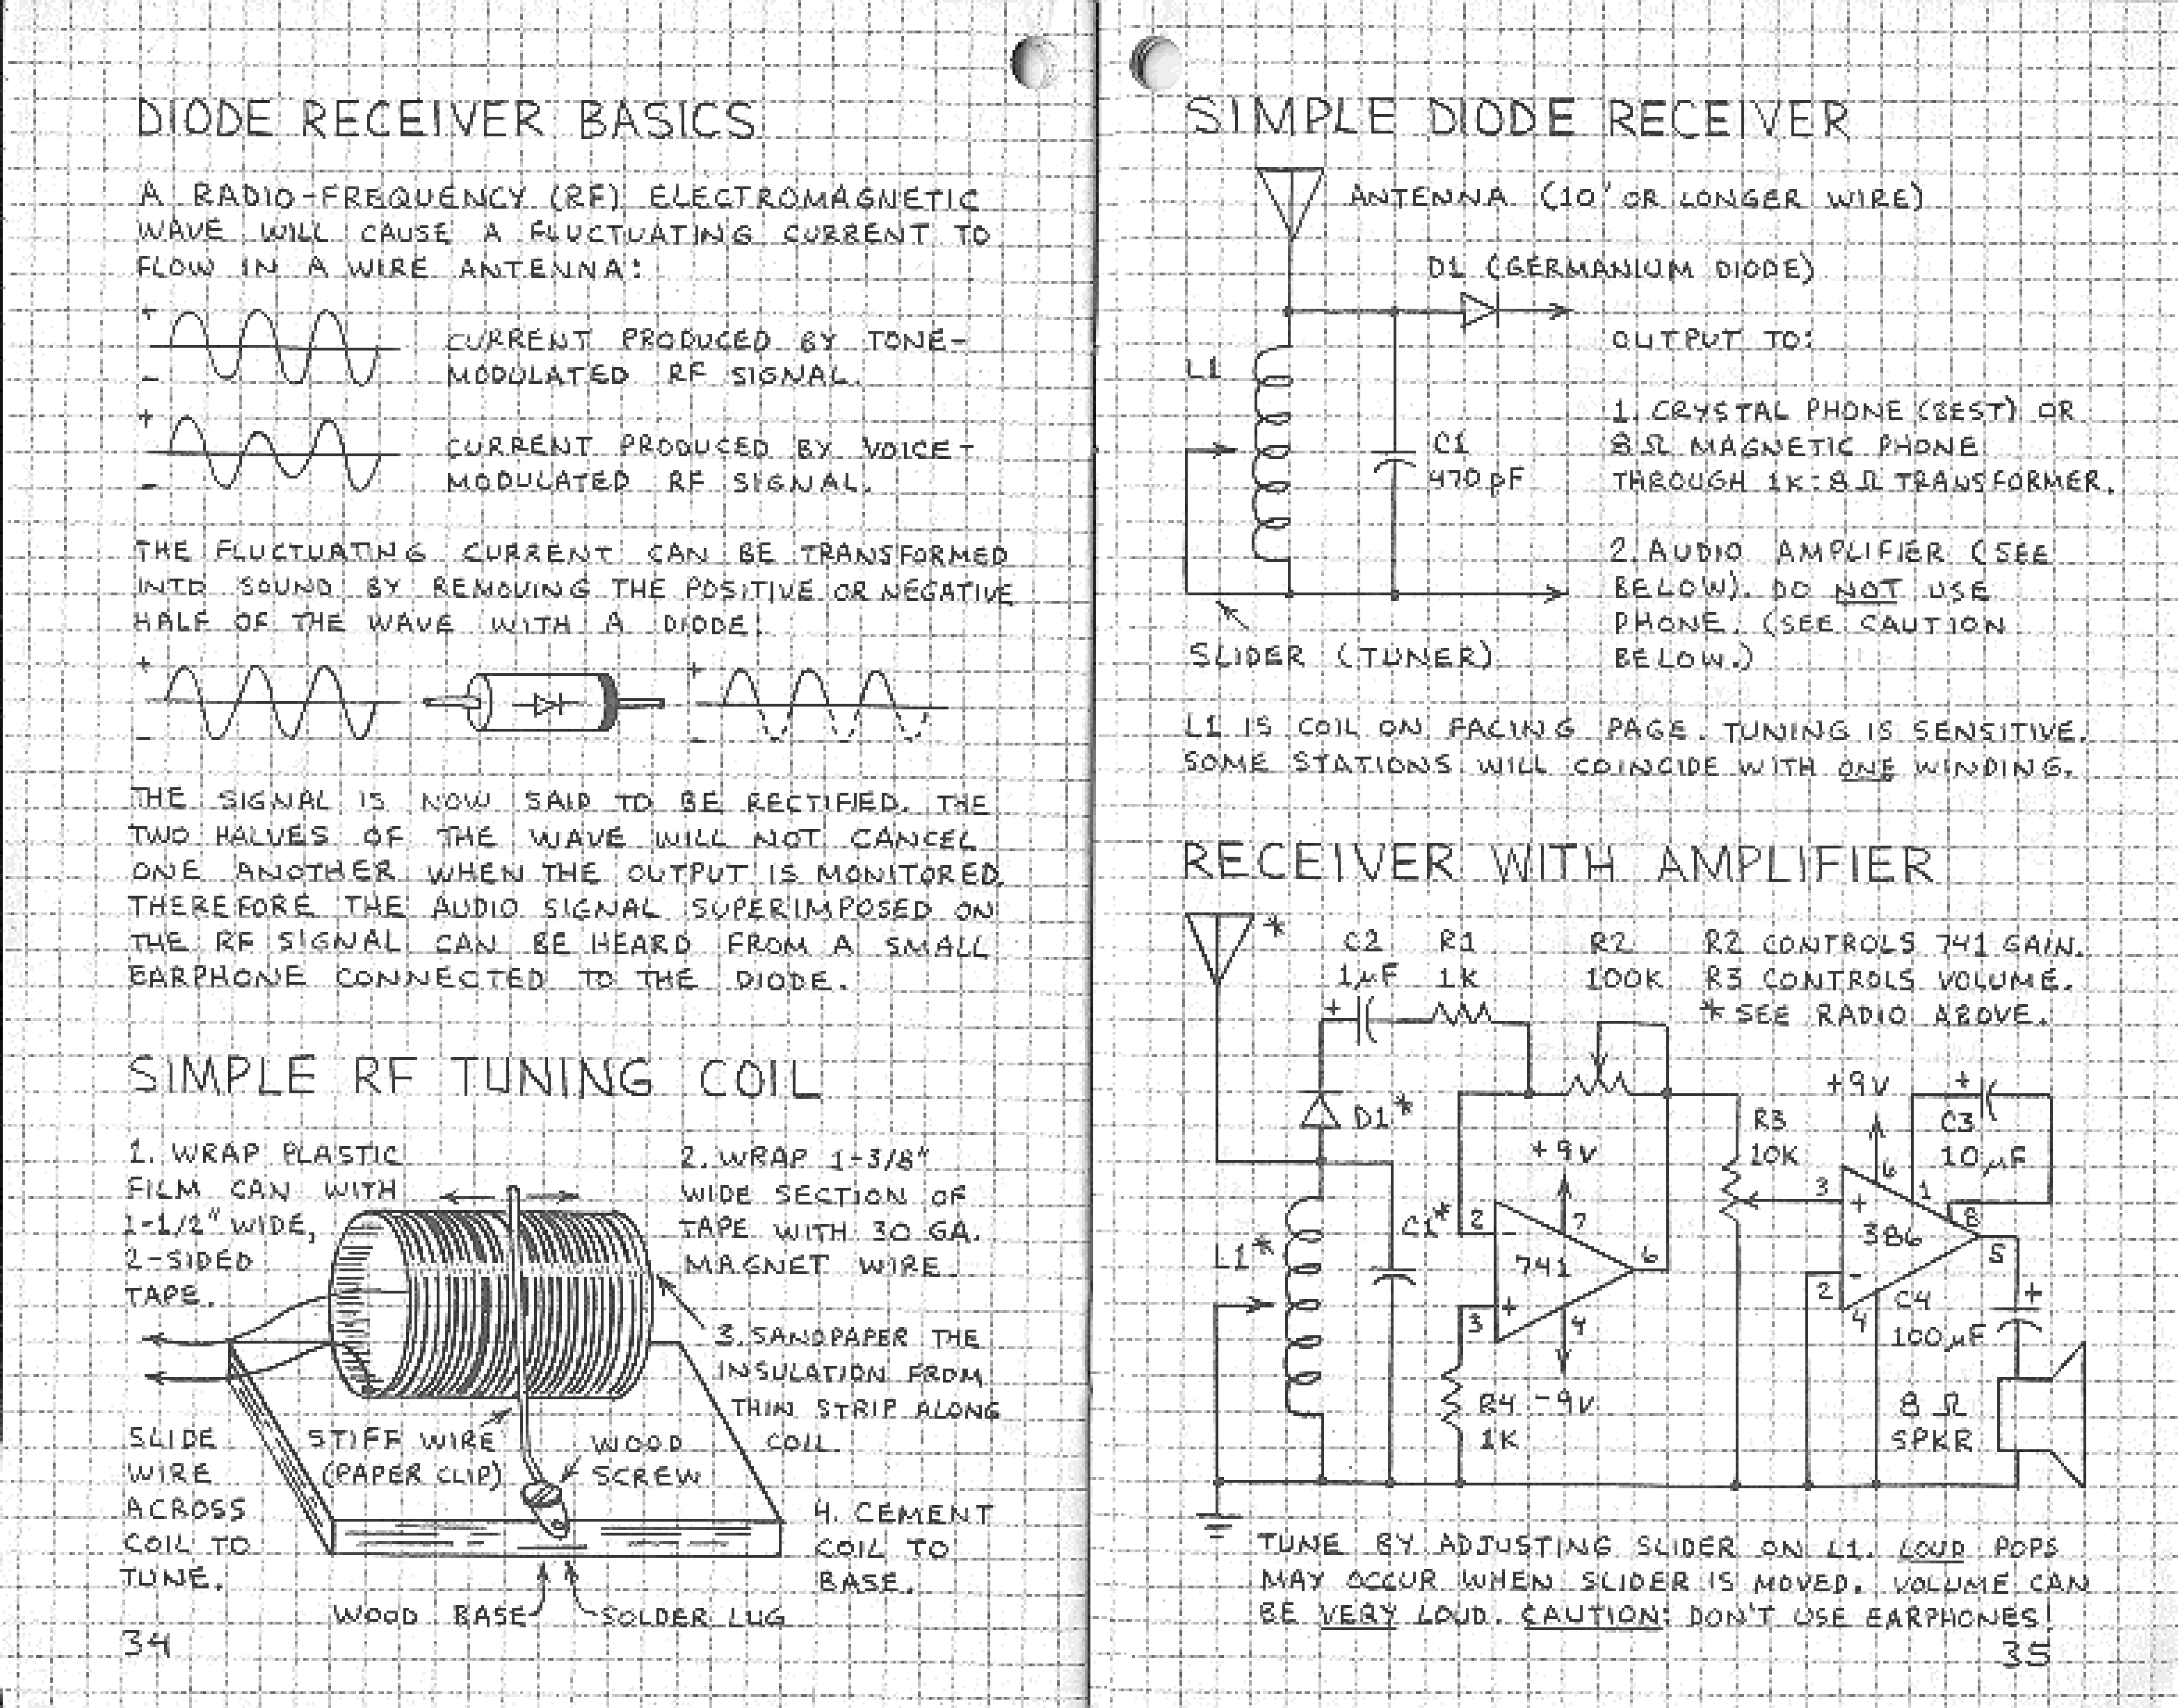 DIODE RECEIVER BASICS
A RADIO-FREQUENCY (RF) ELECTROMAGNETIC
WAVE WILL CAUSE A FLUCTUATING CURRENT TO
FLOW IN A WIRE ANTENNA:
+
-
CURRENT PRODUCED BY TONE-
MODULATED RF SIGNAL.
+
-
CURRENT PRODUCED BY VOICE-
MODULATED RF SIGNAL.
THE FLUCTUATING CURRENT CAN BE TRANSFORMED
INTO SOUND BY REMOVING THE POSITIVE OR NEGATIVE
HALF OF THE WAVE WITH A DIODE:
+
-
+
-
THE SIGNAL IS NOW SAID TO BE RECTIFIED. THE
TWO HALVES OF THE WAVE WILL NOT CANCEL
ONE ANOTHER WHEN THE OUTPUT IS MONITORED.
THEREFORE THE AUDIO SIGNAL SUPERIMPOSED ON
THE RF SIGNAL CAN BE HEARD FROM A SMALL
EARPHONE CONNECTED TO THE DIODE.
SIMPLE RF TUNING COIL
1. WRAP PLASTIC
FILM CAN WITH
1-1/2" WIDE,
2-SIDED
TAPE.
2. WRAP 1-3/8"
WIDE SECTION OF
TAPE WITH 30 GA.
MAGNET WIRE.
3. SANDPAPER THE
INSULATION FROM
THIN STRIP ALONG
COIL.
SLIDE
WIRE
ACROSS
COIL TO
TUNE.
STIFF WIRE
(PAPER CLIP)
WOOD
SCREW
4. CEMENT
COIL TO
BASE.
WOOD BASE
SOLDER LUG
34
SIMPLE DIODE RECEIVER
ANTENNA (10' OR LONGER WIRE)
D1 (GERMANIUM DIODE)
L1
C1
470 pF
SLIDER (TUNER)
OUTPUT TO:
1. CRYSTAL PHONE (BEST) OR
8 Ω MAGNETIC PHONE
THROUGH 1K:8 Ω TRANSFORMER.
2. AUDIO AMPLIFIER (SEE
BELOW). DO NOT USE
PHONE. (SEE CAUTION
BELOW.)
L1 IS COIL ON FACING PAGE. TUNING IS SENSITIVE.
SOME STATIONS WILL COINCIDE WITH ONE WINDING.
RECEIVER WITH AMPLIFIER
*
C2
1µF
+
R1
1K
R2
100K
R2 CONTROLS 741 GAIN.
R3 CONTROLS VOLUME.
* SEE RADIO ABOVE.
D1*
L1*
C1*
+9V
2
-
7
741
6
3
+
4
-9V
R4
1K
R3
10K
+9V
+
C3
10µF
3
+
6
1
8
386
5
2
-
4
C4
100µF
+
8 Ω
SPKR
TUNE BY ADJUSTING SLIDER ON L1. LOUD POPS
MAY OCCUR WHEN SLIDER IS MOVED. VOLUME CAN
BE VERY LOUD. CAUTION: DON'T USE EARPHONES!
35